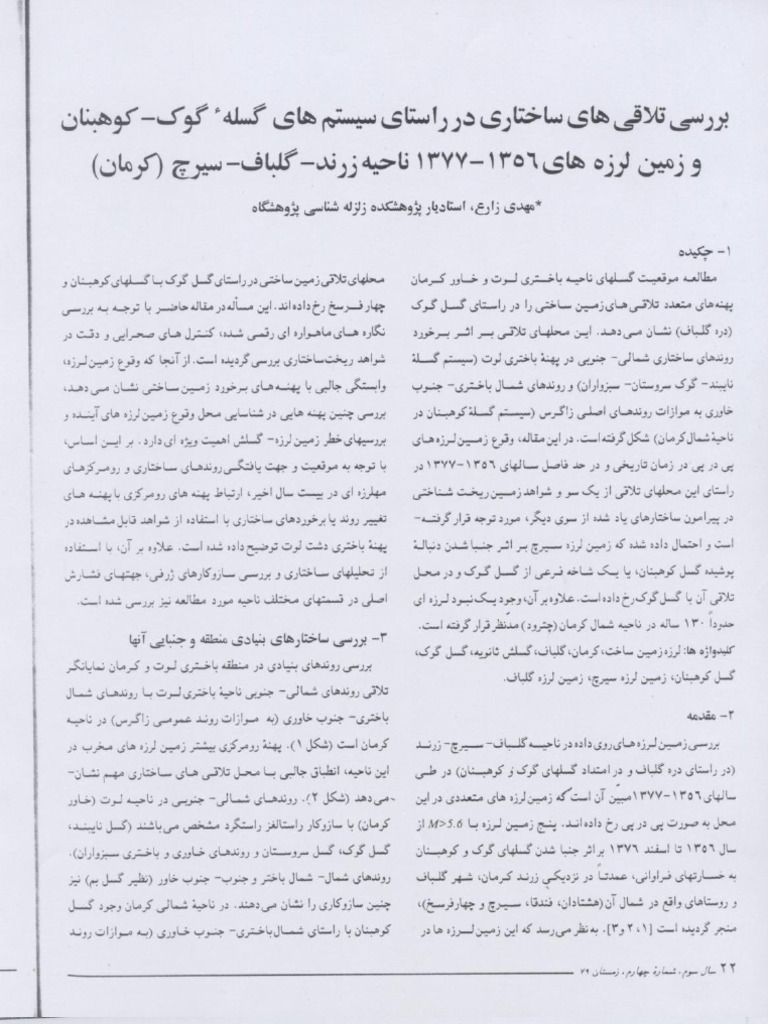 بررسی تلاقی های ساختاری در راستای سیستم های گسلهٔ گوک- کوهبنان
و زمین لرزه های ۱۳۵۶-۱۳۷۷ ناحیه زرند- گلباف- سیرچ (کرمان)
*مهدی زارع، استادیار پژوهشکده زلزله شناسی پژوهشگاه
۱- چکیده
مطالعه موقعیت گسلهای ناحیه باختری لوت و خاور کرمان
پهنه‌های متعدد تلاقی‌های زمین ساختی را در راستای گسل گوک
(دره گلباف) نشان می‌دهد. این محلهای تلاقی بر اثر برخورد
روندهای ساختاری شمالی- جنوبی در پهنهٔ باختری لوت (سیستم گسلهٔ
نایبند- گوک سروستان- سبزواران) و روندهای شمال باختری- جنوب
خاوری به موازات روندهای اصلی زاگرس (سیستم گسلهٔ کوهبنان در
ناحیهٔ شمال کرمان) شکل گرفته است. در این مقاله، وقوع زمین‌لرزه‌های
پی در پی در زمان تاریخی و در حد فاصل سالهای ۱۳۵۶-۱۳۷۷ در
راستای این محلهای تلاقی از یک سو و شواهد زمین ریخت شناختی
در پیرامون ساختارهای یاد شده از سوی دیگر، مورد توجه قرار گرفته-
است و احتمال داده شده که زمین لرزه سیرچ بر اثر جنبا شدن دنبالهٔ
پوشیده گسل کوهبنان، یا یک شاخه فرعی از گسل گوک و در محل
تلاقی آن با گسل گوک رخ داده است. علاوه بر آن، وجود یک نبود لرزه ای
حدوداً ۱۳۰ ساله در ناحیه شمال کرمان (چترود) مدّنظر قرار گرفته است.
کلیدواژه ها: لرزه زمین ساخت، کرمان، گلباف، گسلش ثانویه، گسل گوک،
گسل کوهبنان، زمین لرزه سیرچ، زمین لرزه گلباف.
۲- مقدمه
بررسی زمین لرزه های روی داده در ناحیه گلباف- سیرچ- زرند
(در راستای دره گلباف و در امتداد گسلهای گوک و کوهبنان) در طی
سالهای ۱۳۵۶-۱۳۷۷ مبیّن آن است که زمین لرزه های متعددی در این
محل به صورت پی در پی رخ داده اند. پنج زمین لرزه با M>5.6 از
سال ۱۳۵۶ تا اسفند ۱۳۷۶ بر اثر جنبا شدن گسلهای گوک و کوهبنان
به خسارتهای فراوانی، عمدتاً در نزدیکی زرند کرمان، شهر گلباف
و روستاهای واقع در شمال آن (هشتادان، فندقا، سیرچ و چهارفرسخ)،
منجر گردیده است [۱، ۲ و ۳]. به نظر می‌رسد که این زمین لرزه ها در
محلهای تلاقی زمین ساختی در راستای گسل گوک با گسلهای کوهبنان و
چهار فرسخ رخ داده اند. این مسأله در مقاله حاضر با توجه به بررسی
نگاره های ماهواره ای رقمی شده، کنترل های صحرایی و دقت در
شواهد ریخت‌ساختاری بررسی گردیده است. از آنجا که وقوع زمین‌لرزه،
وابستگی جالبی با پهنه‌های برخورد زمین ساختی نشان می‌دهد،
بررسی چنین پهنه هایی در شناسایی محل وقوع زمین لرزه های آینده و
بررسیهای خطر زمین لرزه- گسلش اهمیت ویژه ای دارد. بر این اساس،
با توجه به موقعیت و جهت یافتگی روندهای ساختاری و رومرکزهای
مهلرزه ای در بیست سال اخیر، ارتباط پهنه های رومرکزی با پهنه های
تغییر روند یا برخوردهای ساختاری با استفاده از شواهد قابل مشاهده در
پهنهٔ باختری دشت لوت توضیح داده شده است. علاوه بر آن، با استفاده
از تحلیلهای ساختاری و بررسی سازوکارهای ژرفی، جهتهای فشارش
اصلی در قسمتهای مختلف ناحیه مورد مطالعه نیز بررسی شده است.
۳- بررسی ساختارهای بنیادی منطقه و جنبایی آنها
بررسی روندهای بنیادی در منطقه باختری لوت و کرمان نمایانگر
تلاقی روندهای شمالی- جنوبی ناحیهٔ باختری لوت با روندهای شمال
باختری- جنوب خاوری (به موازات روند عمومی زاگرس) در ناحیه
کرمان است (شکل ۱). پهنهٔ رومرکزی بیشتر زمین لرزه های مخرب در
این ناحیه، انطباق جالبی با محل تلاقی های ساختاری مهم نشان-
می‌دهد (شکل ۲). روندهای شمالی- جنوبی در ناحیه لوت (خاور
کرمان) با سازوکار راستالغز راستگرد مشخص می‌باشند (گسل نایبند،
گسل گوک، گسل سروستان و روندهای خاوری و باختری سبزواران).
روندهای شمال- شمال باختر و جنوب- جنوب خاور (نظیر گسل بم) نیز
چنین سازوکاری را نشان می‌دهند. در ناحیه شمالی کرمان وجود گسل
کوهبنان با راستای شمال‌باختری- جنوب خاوری (به موازات روند
۲۲ سال سوم، شمارهٔ چهارم، زمستان ۷۹